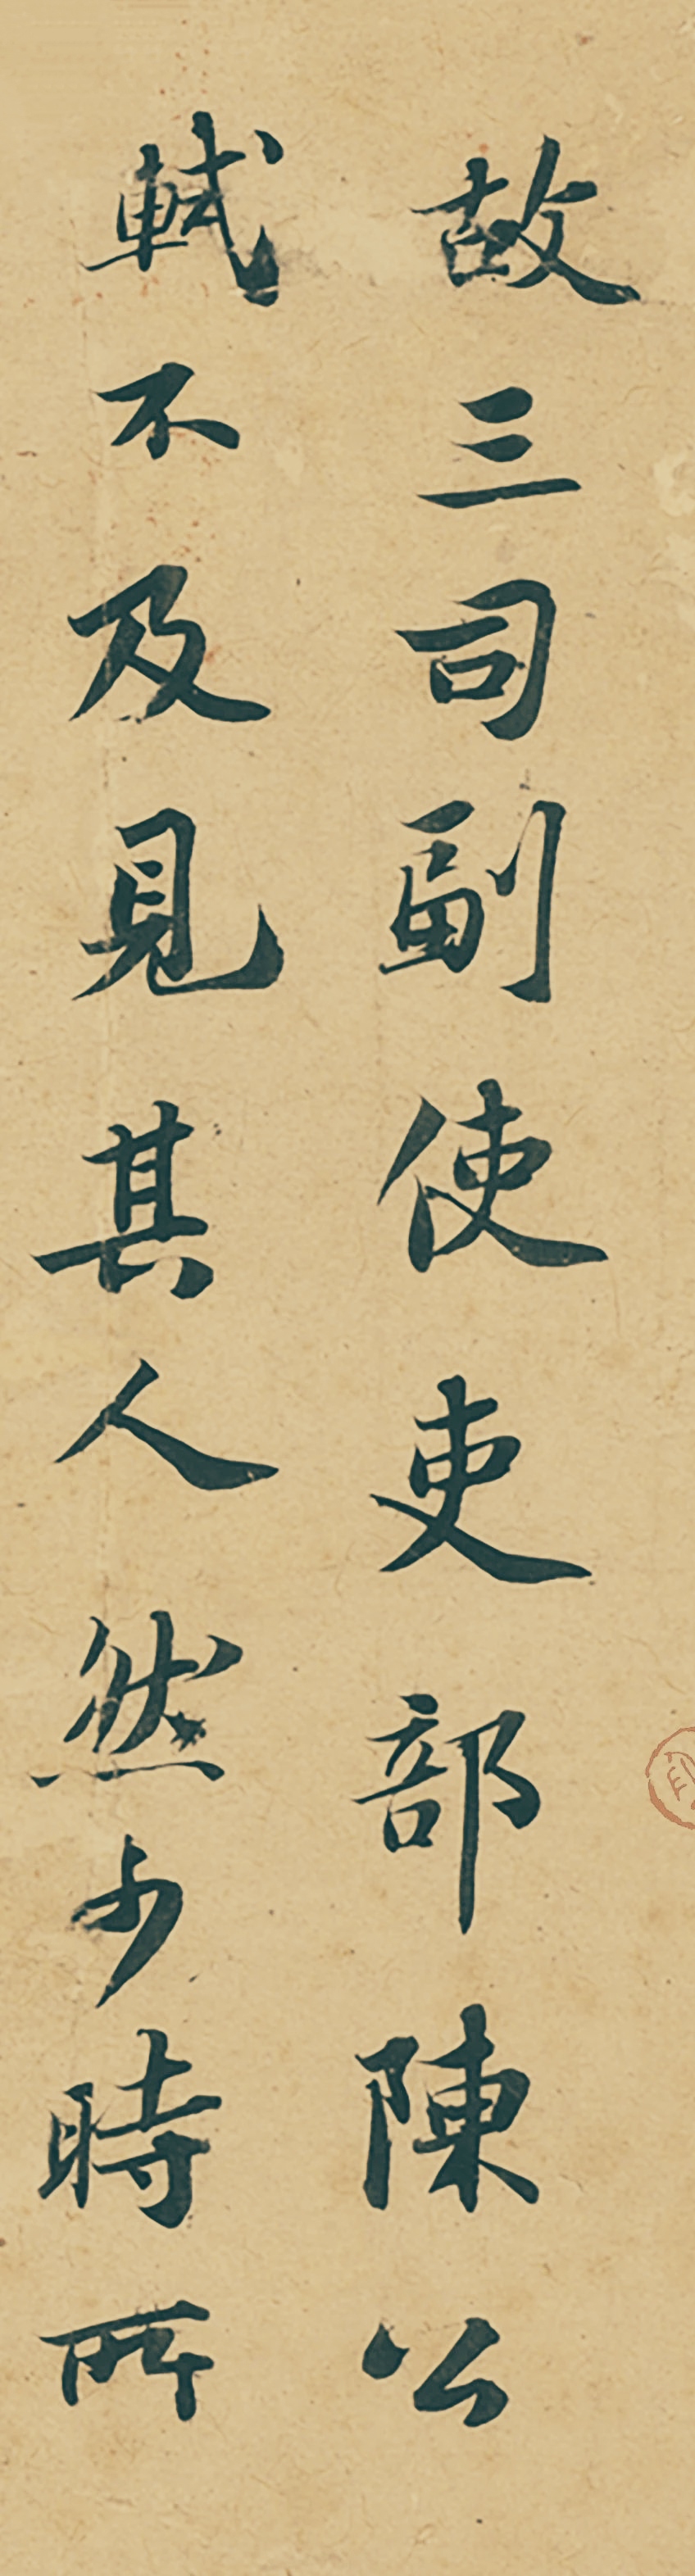 故三司副使吏部陳公
軾不及見其人然少時所